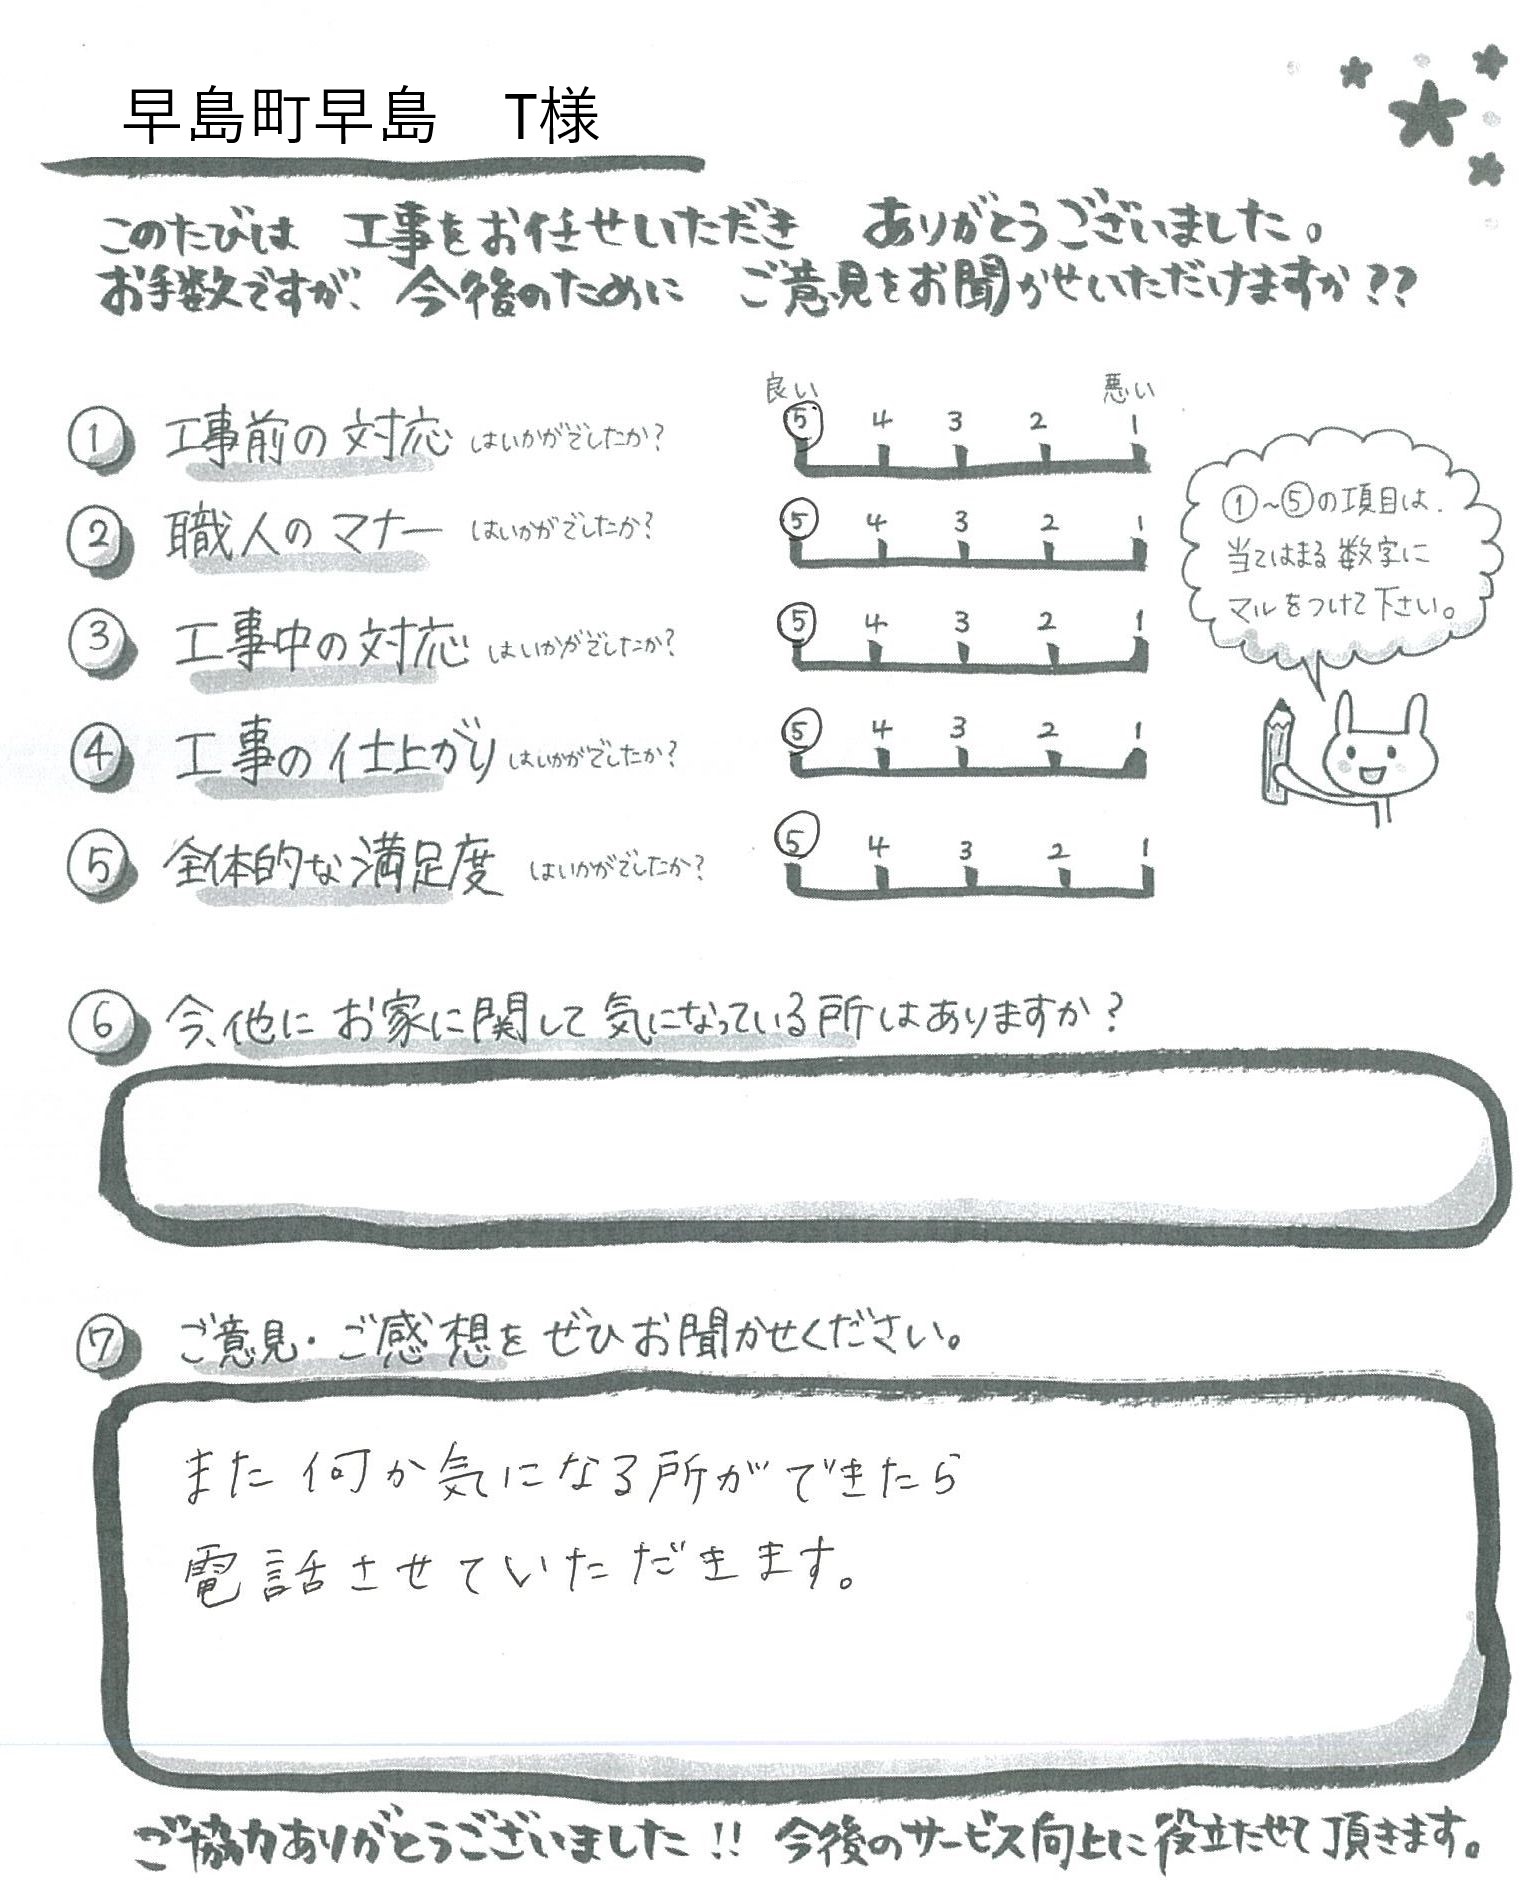 早島町早島　T様
このたびは 工事をお任せいただき ありがとうございました。
お手数ですが、今後のために ご意見をお聞かせいただけますか??
良い 悪い
① 工事前の対応 はいかがでしたか? 5 4 3 2 1
② 職人のマナー はいかがでしたか? 5 4 3 2 1
③ 工事中の対応 はいかがでしたか? 5 4 3 2 1
④ 工事の仕上がり はいかがでしたか? 5 4 3 2 1
⑤ 全体的な満足度 はいかがでしたか? 5 4 3 2 1
①~⑤の項目は、
当てはまる数字に
マルをつけて下さい。
⑥ 今、他にお家に関して気になっている所はありますか?
⑦ ご意見・ご感想をぜひお聞かせください。
また何か気になる所ができたら
電話させていただきます。
ご協力ありがとうございました!! 今後のサービス向上に役立たせて頂きます。